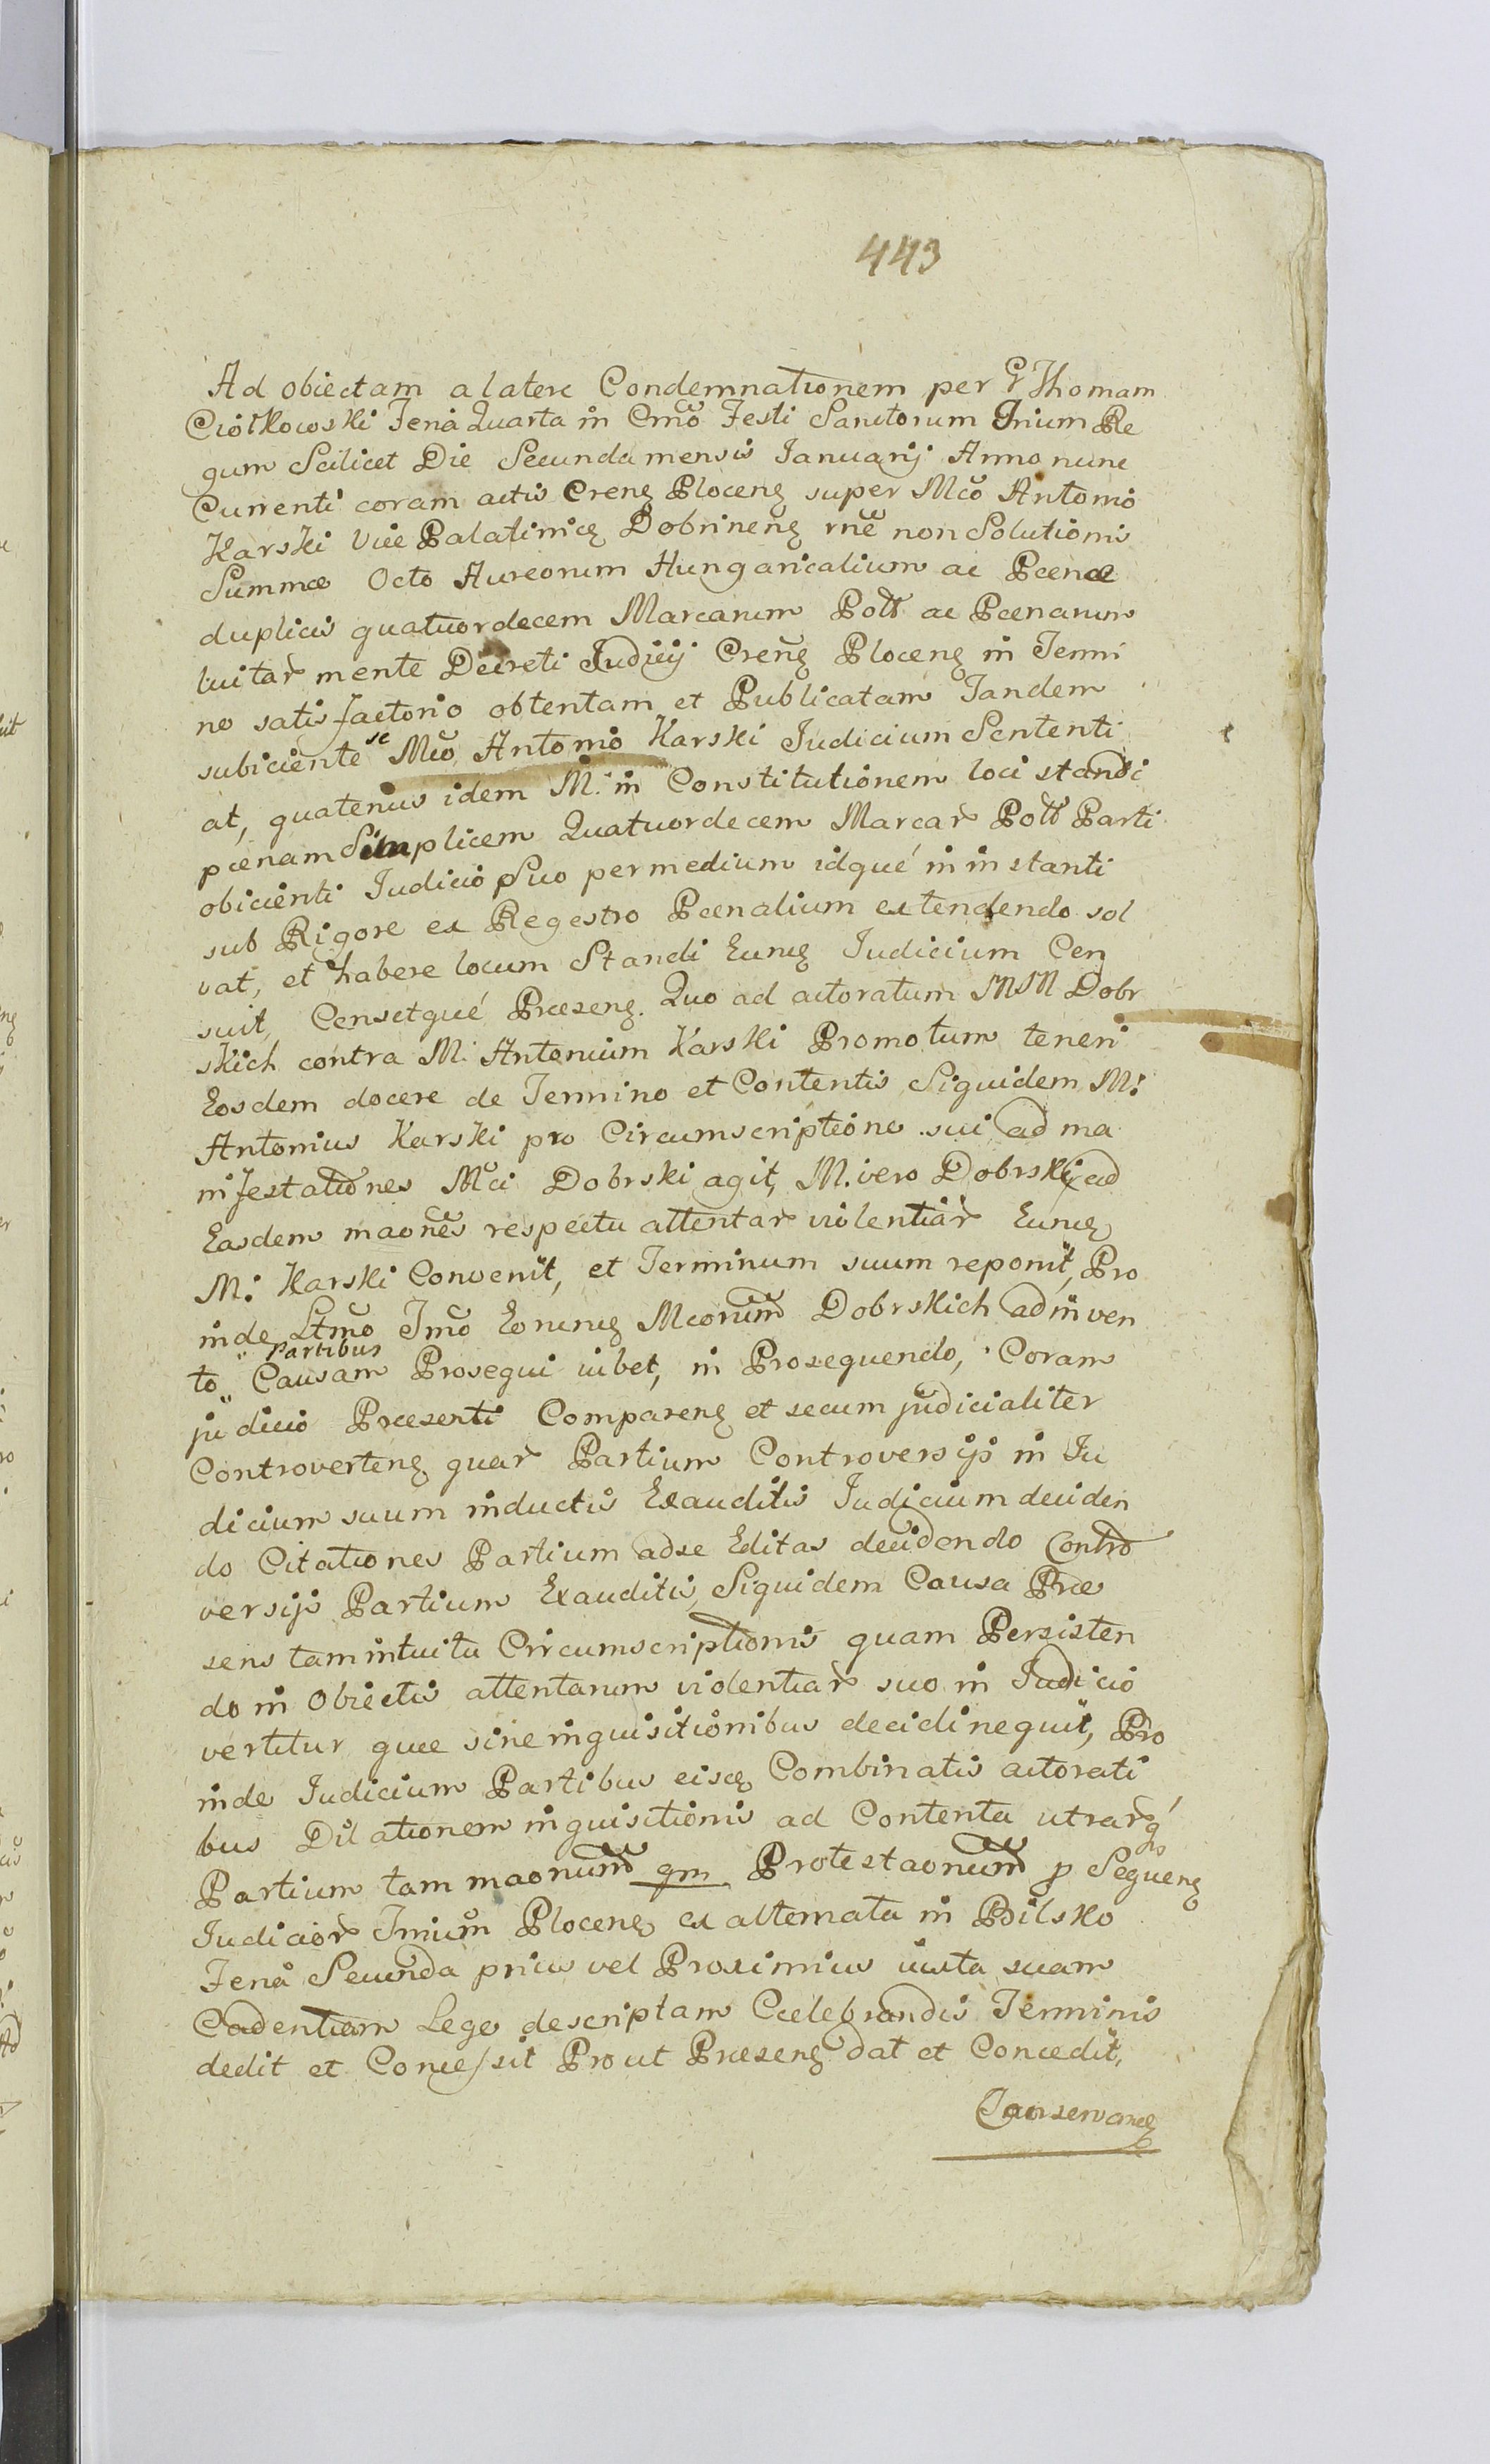 443
Ad obiectam a latere Condemnationem per G Thomam
Ciołkowski Feria Quarta in Cmō Festi Sanctorum Trium Re
gum Scilicet Die Secunda mensis Ianuarij Anno nunc
Currenti coram actis Creng Ploceng super Mcō Antonio
Karski Vice Palatinicę Dobrineng rnē non Solutionis
Summæ Octo Aureorum Hungaricalium ac Pœnæ
duplicis quatuordecem Marcarum Poll ac Pœnarum
luitar mente Decreti Judicij Creng Ploceng in Termi
no satisfactorio obtentam et Publicatam Tandem
subiciente se Mcō Antonio Karski Judicium Sententi
at, quatenus idem M. in Constitutionem loci standi
pœnam Simplicem Quatuordecem Marcar Poll Parti
obicienti Iudicio Suo per medium idqué in instanti
sub Rigore ex Regestro Pœnalium extendendo sol
vat, et habere locum Standi Eunę Judicium Cen
suit, Censetqué Præseng. Quo ad actoratum MM Dobr
skich contra M. Antonium Karski Promotum teneri
Eosdem docere de Termino et Contentis Siquidem M:
Antonius Karski pro Circumscriptione sui ad ma
nifestationes Mci Dobrski agit, M. vero Dobrski ad
Easdem maones respectu attentar violentiar Eunę
M: Karski Convenit, et Terminum suum reponit, Pro
inde Ltmō Tmō Eorunę Mcorum Dobrskich adinven
to Partibus Causam Prosequi iubet, in Prosequendo, Coram
judicio Præsenti Compareng et secum judicialiter
Controverteng quar Partium Controversijs in Ju
dicium suum inductis Exauditis Judicium deciden
do Citationes Partium ad se Editas decidendo Contro
versijs Partium Exauditis, Siquidem Causa Præ
sens tam intuitu Circumscriptionis quam Persisten
do in Obiectis attentarum violentiar suo in Judicio
vertitur quæ sine inquisitionibus decidi nequit, Pro
inde Judicium Partibus eisę Combinatis actorati
bus Dilationem inquisitionis ad Contenta utrarq
Partium tam maonum qm Protestaonum p Segueng
Judicior Trium Ploceng ex alternata in Bilsko
Feria Secunda prius vel Proximius iuxta suam
Cadentiam Lege descriptam Cælebrandis Terminis
dedit et Concessit Prout Præseng dat et Concedit,